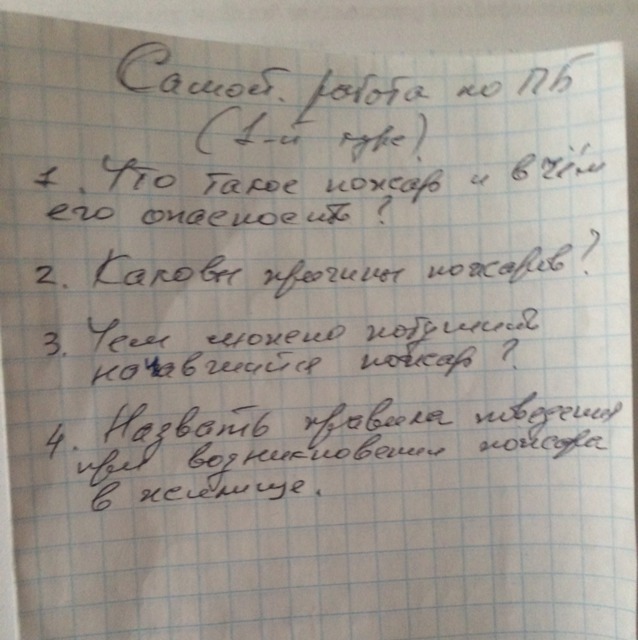 Самост. работа по ПБ
(1-й курс)
1. Что такое пожар и в чём
его опасность?
2. Каковы причины пожаров?
3. Чем можно потушить
начавшийся пожар?
4. Назвать правила поведения
при возникновении пожара
в жилище.